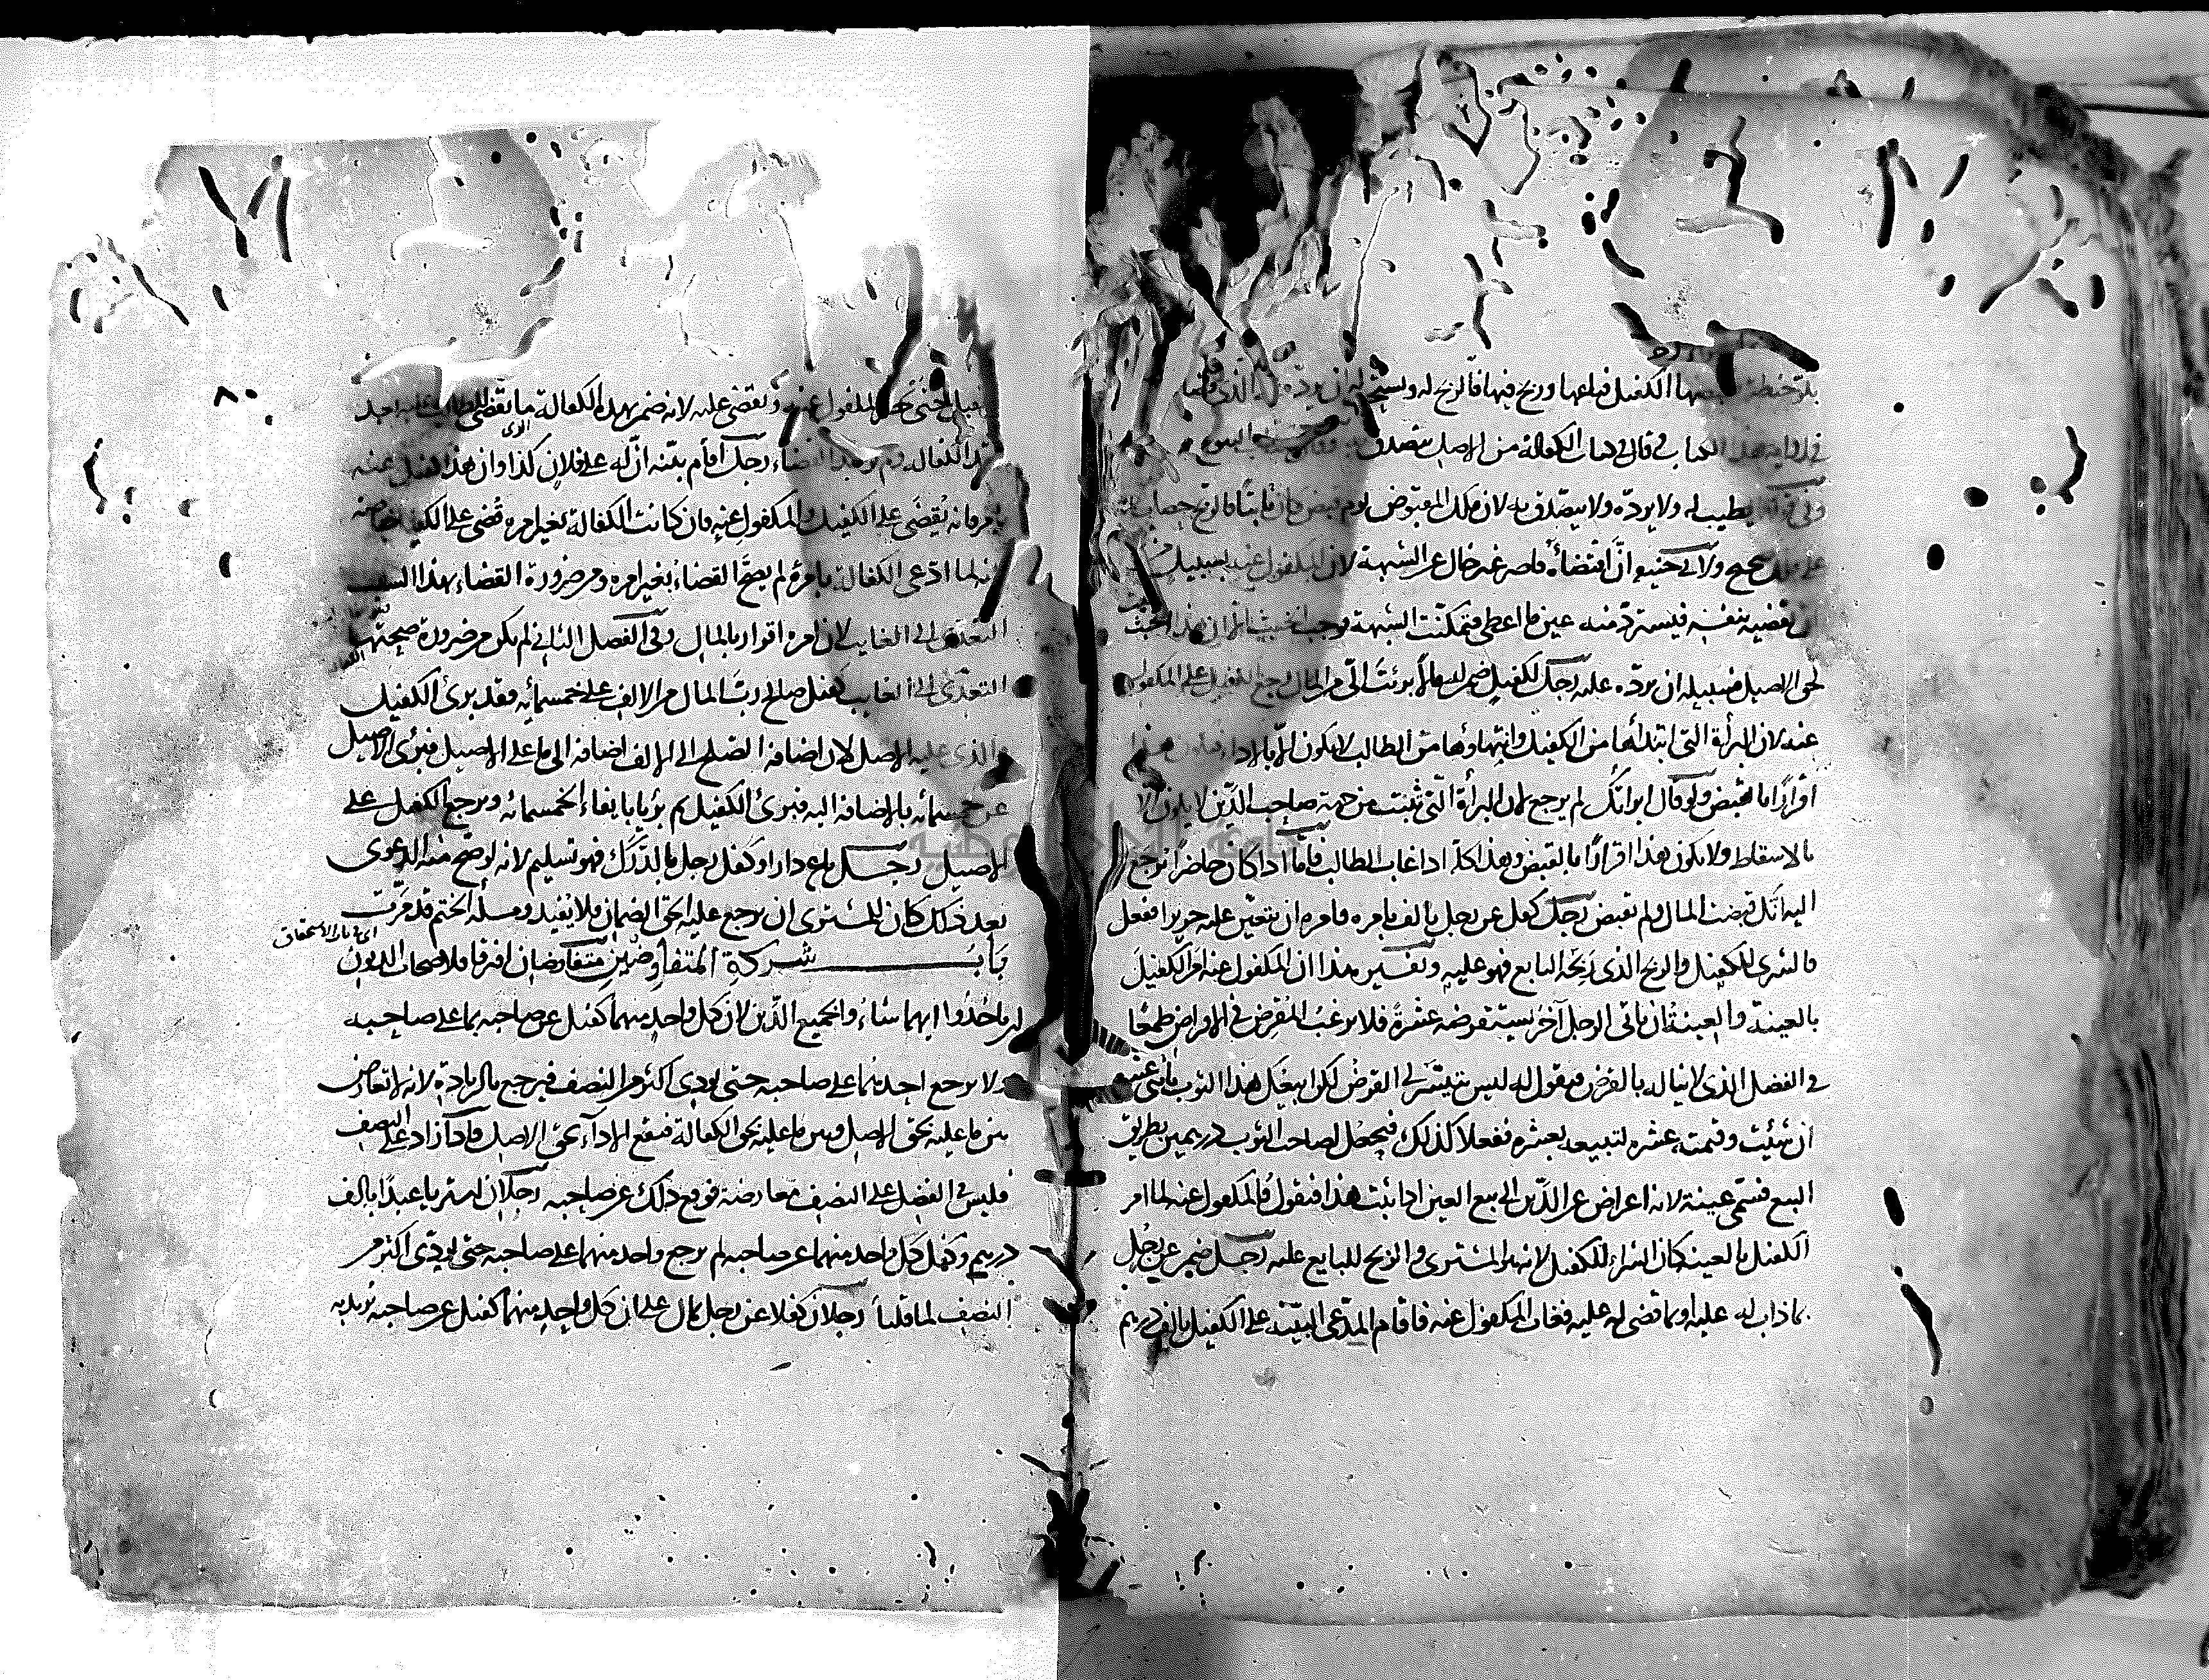 بكر حنطة فقبضها الكفيل فباعها وربح فيها فالربح له ويستحب له ان يرده على الذي قضاه
في رواية هذا الكتاب وقال في كتاب الكفالة من الاصل يتصدق به
وفي قولهما يطيب له ولا يرده ولا يتصدق به لان ملك المقبوض يوم قبض كان ثابتا فالربح حصل
على ملك صحيح ولابي حنيفة انّ اقتضاءه قاصر غير خال عن الشبهة لان المكفول عنه بسبيل
ان يقضيه بنفسه فيسترد منه عين ما اعطى فتمكنت الشبهة فوجب الخبث الا ان هذا الخبث
لحق الاصيل فسبيله ان يرده عليه رجل لكفيل ضمن له مالا برئت اليّ من المال رجع الكفيل على المكفول
عنه لان البرأة التي ابتداؤها من الكفيل وانتهاؤها من الطالب لا يكون الا بالاداء
اقرارًا بالقبض ولو قال ابراتك لم يرجع لان البرأة التي ثبتت من جهة صاحب الدين لا يكون الا
بالاسقاط ولا يكون هذا اقرارًا بالقبض وهذا كله اذا غاب الطالب فاما اذا كان حاضرًا نرجع
اليه انك قبضت المال ولم تقبض رجل كفل عن رجل بالف بامره فامره ان يتعين عليه حريرا ففعل
فالشرى للكفيل والربح الذي ربحه البايع فهو عليه وتفسير هذا ان المكفول عنه امر الكفيل
بالعينة والعينة ان ياتي الرجل آخر يستقرضه عشرة فلا يرغب المقرض في الاقراض طمعًا
في الفضل الذي لا يناله بالقرض فيقول له ليس يتيسر لي القرض لكن ابيعك هذا الثوب باثنى عشر
ان شئت وقيمته عشره لتبيعه بعشره ففعلا كذلك فيحصل لصاحب الثوب درهمين بطريق
البيع فسمى عينة لانه اعراض عن الدين الى بيع العين اذا ثبت هذا فنقول فالمكفول عنه لما امر
الكفيل بالعينة كان الشراء للكفيل لانه هو المشترى والربح للبايع عليه رجل ضمن عن رجل
بما ذاب له عليه او بما قضى له عليه فغاب المكفول عنه فاقام المدعي البينة على الكفيل بالف درهم
لم يقبل حتى يحضر المكفول عنه ونقضي عليه لانه ضمن بهذه الكفالة ما يقضى للطالب عليه بعد
هذا الكفالة ولم يوجد القضاء رجل أقام بينه انّ له على فلان كذا وان هذا كفيل عنه
بامره فانه يُقضَى على الكفيل والمكفول عنه فان كانت الكفالة بغير امره قُضي على الكفيل خاصه
لانه لما ادعى الكفالة بامره لم يصح القضاء بغير امره ومن ضرورة القضاء بهذا السبب
التعدي الى الغايب لان امره اقرار بالمال وفي الفصل الثاني لم يكن من ضرورة صحتها
التعدّي الى الغايب كفيل صالح ربّ المال من الالف على خمسمائه فقد برئ الكفيل
والذي عليه الاصل لان اضافة الصلح الى الالف اضافه الى ما على الاصيل فبرئ الاصيل
عن خمسمائه بالاضافه اليه فبرئ الكفيل ثم برئا بايفاء الخمسمائه ويرجع الكفيل على
الاصيل رجل باع دارا وكفل رجل بالدَرَك فهو تسليم لانه لو صح منه الدعوى
بعد ذلك كان للمشترى ان يرجع عليه بحق الضمان فلا يفيد ومسلة الختم قد مرّت
اي في باب الاستحقاق
بَابُ شركة المتفاوضين متفاوضان افترقا فلاصحاب الديون
ان ياخذوا ايهما شاءوا بجميع الدّين لان كل واحد منهما كفيل عن صاحبه بما على صاحبه
ولا يرجع احدهما على صاحبه حتى يودى اكثر من النصف فيرجع بالزيادة لانه لا تعارض
بين ما عليه بحق الاصل وبين ما عليه بحق الكفالة فيقع الاداء بحق الاصل فاذا زاد على النصف
فليس في الفضل على النصف معارضة فوقع ذلك عن صاحبه رجلان اشتريا عبدًا بالف
درهم وكفل كل واحد منهما عن صاحبه لم يرجع واحد منهما على صاحبه حتى يؤدّى اكثر من
النصف لما قلنا رجلان كفلا عن رجل بمال على ان كل واحد منهما كفيل عن صاحبه